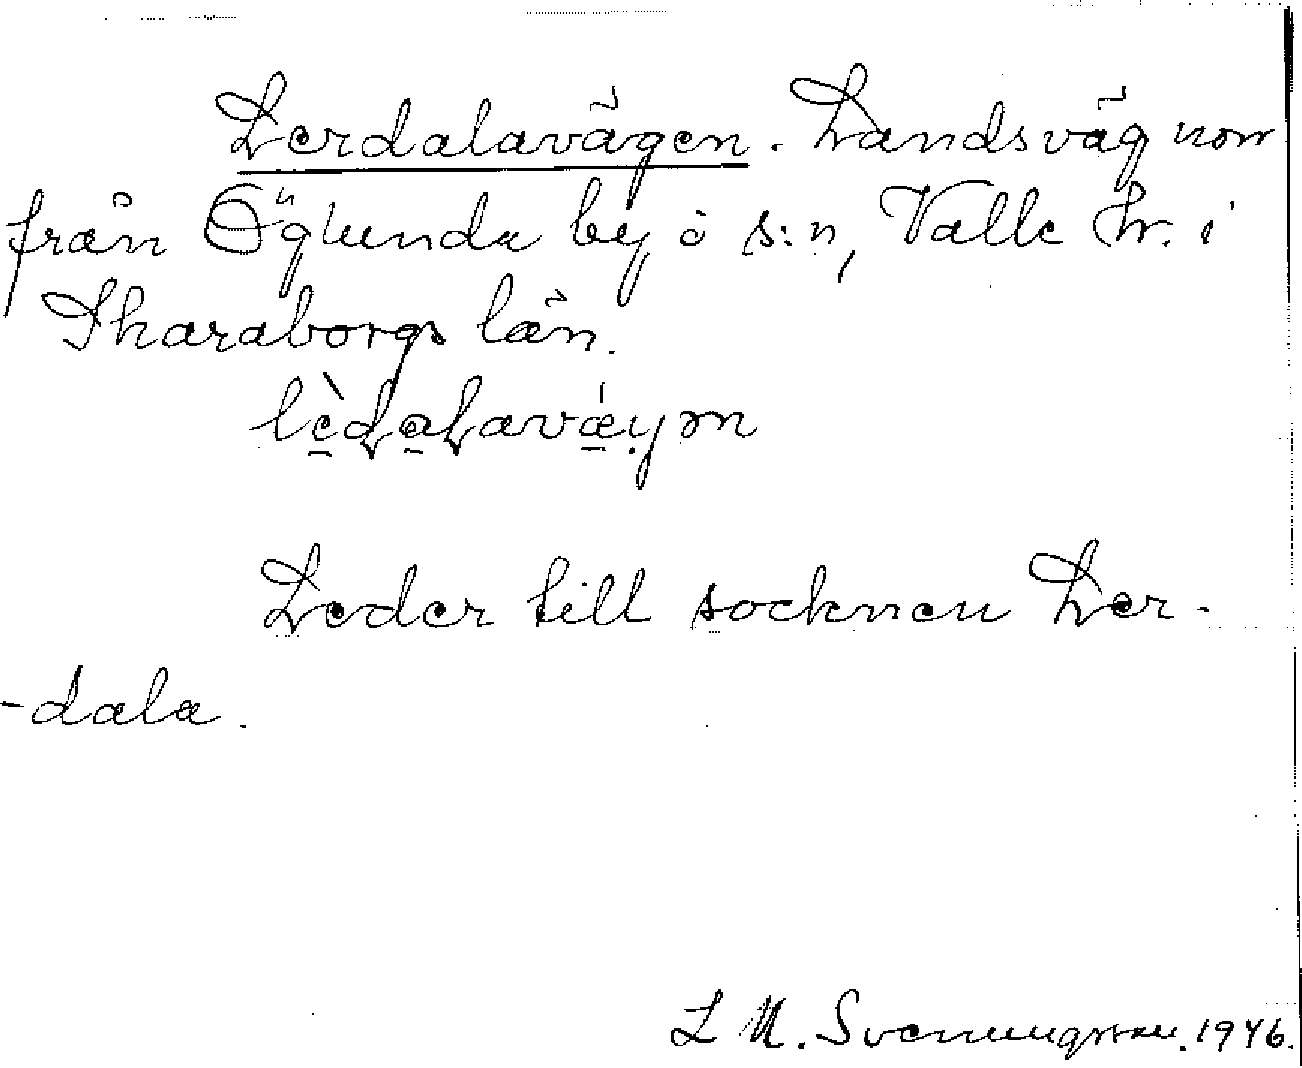 Lerdalavägen. Landsväg norr
från Öglunda by o s:n, Valle hr. i
Skaraborgs län.
Leder till socknen Ler-
-dala.
L M. Svenungsson. 1946.